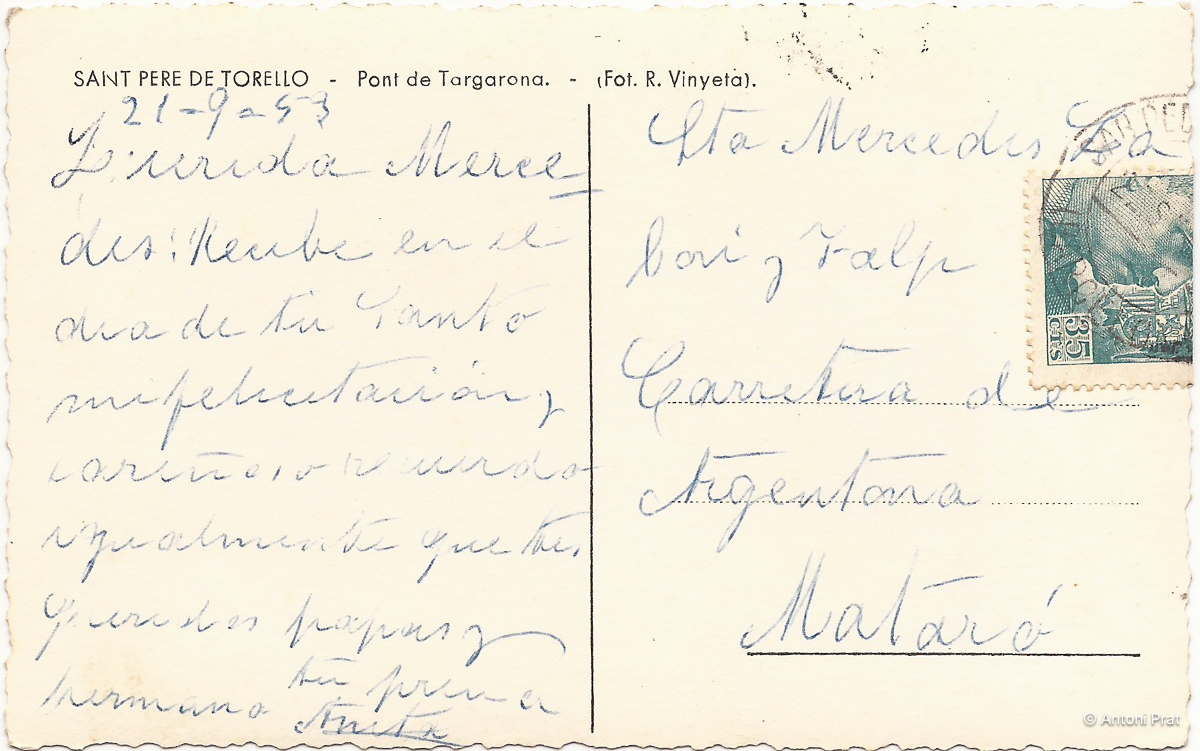 SANT PERE DE TORELLO - Pont de Targarona. - (Fot. R. Vinyeta).
21-9-53
Querida Merce
des: Recibe en el
dia de tu Santo
mi felicitación y
cariñoso recuerdo
igualmente que tus
queridos papas y
hermano tu prima
Anita
Sta Mercedes
y Falp
Carretera de
Argentona
Mataró
35
CTS
© Antoni Prat